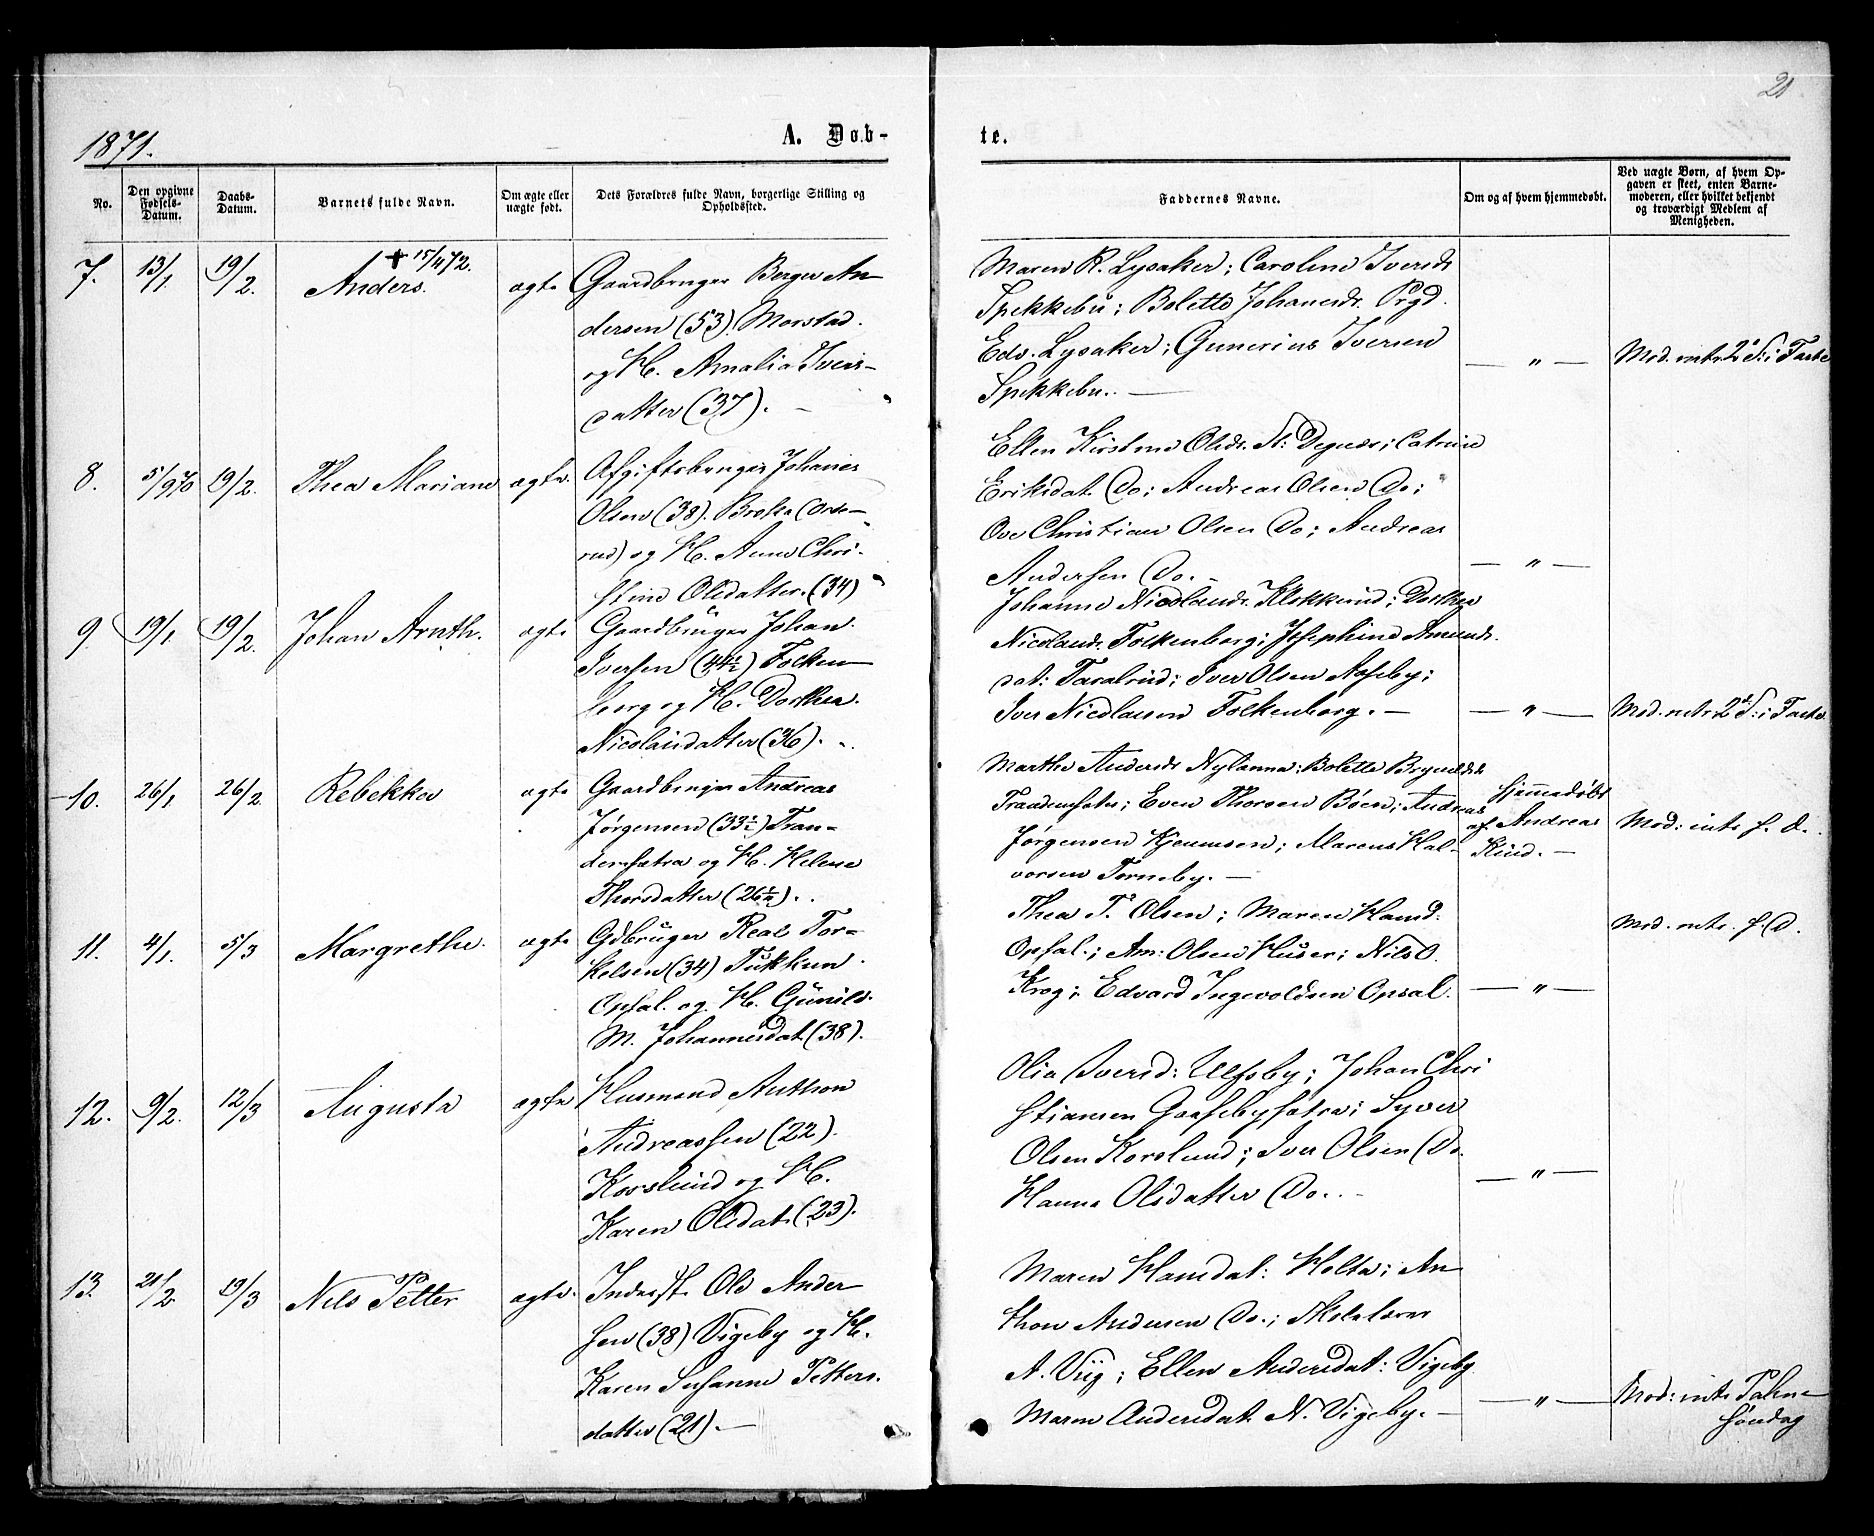 21
1871.
A. Døb-
te.
No.
Den opgivne Fødsels-Datum.
Daabs-Datum.
Barnets fulde Navn.
Om ægte eller uægte født.
Dets Forældres fulde Navn, borgerlige Stilling og Opholdssted.
Faddernes Navne.
Om og af hvem hjemmedøbt.
Ved uægte Børn, af hvem Opgaven er skeet, enten Barnemoderen, eller hvilket bekjendt og troværdigt Medlem af Menigheden.
7. 13/1 19/2. Anders. + 15/4 72. ægte
Gaardbruger Berger An
dersen (53). Morstad.
og H. Amalia Ivers-
datter (37). —
Maren R. Lysaker; Caroline Iversdr
Spekkebu; Bolette Johanesdr. Prgd.
Edv. Lysaker; Gunerius Iversen
Spekkebu. —
— " —
Mod. intr. 2d S: i Faste
8. 5/9 70 19/2. Thea Mariane ægte.
Afgiftsbruger Johanes
Olsen (38). Brekka (Orde-
rud) og H. Anne Chri-
stine Olsdatter. (34)
Ellen Kirstine Olsdr. St: Degnæs; Catrine
Eriksdat. Do; Andreas Olsen Do;
Ove Christian Olsen Do; Andreas
Andersen Do. -
— " —
9. 19/1 19/2. Johan Arnth. ægte
Gaardbruger Johan.
Iversen (44½) Folken
borg og H. Dorthea.
Nicolaisdatter (36).
Johanne Nicolaisdr. Klokkerud; Dorthea
Nicolaisdr. Folkenborg; Josephine Amunds.
dat: Taralrud; Iver Olsen Næseby;
Iver Nicolaisen Folkenborg. —
— " —
Mod. intr 2d S: i Faste
10. 26/1 26/2. Rebekka ægte
Gaardbruger Andreas
Jørgensen (33½) Tran-
dernsætra og H. Helene
Thorsdatter (26½).
Marthe Andersdr Nylænna; Bolette Brynildsdr
Traudernsæter; Even Thorsen Bøen; Andreas
Jørgensen Hjemmsen; Marcus Hal-
vorsen Torneby. —
hjemmedøbt
af Andreas
Kind. —
Mod: intr. s. D.
11. 4/1. 5/3 Margrethe. ægte
Gdbruger Real Tor-
kelsen (34) Tukkun.
Opsal. og H. Gunild.
M. Johannesdat (38).
Thea T. Olsen; Maren Hansd:
Opsal.; Am: Olsen Huser; Nils O.
Krog; Edvard Ingevoldsen Opsal.
— " —
Mod. intr. s. D.
12. 9/2. 12/3 Augusta ægte
Husmand Anthon
Andreassen (22).
Korslund og H.
Karen Olsdat. (23).
Olia Iversd: Ulfsby; Johan Chri
stiansen Gaasebysætra; Syver
Olsen Korslund; Iver Olsen Do.
Hanna Olsdatter Do. -
— " —
13. 21/2 19/3 Nils Petter ægte.
Inderst Ole Ander
sen (38) Vigeby og H.
Karen Susanne Petters.
datter (21). —
Maren Hansdat: Holta; An
thon Andersen Do.; Skolelærer
A. Viig; Ellen Andersdat: Vigeby.
Maren Andersdat. N. Vigeby. —
— " —
Mod: intr. Palme
søndag